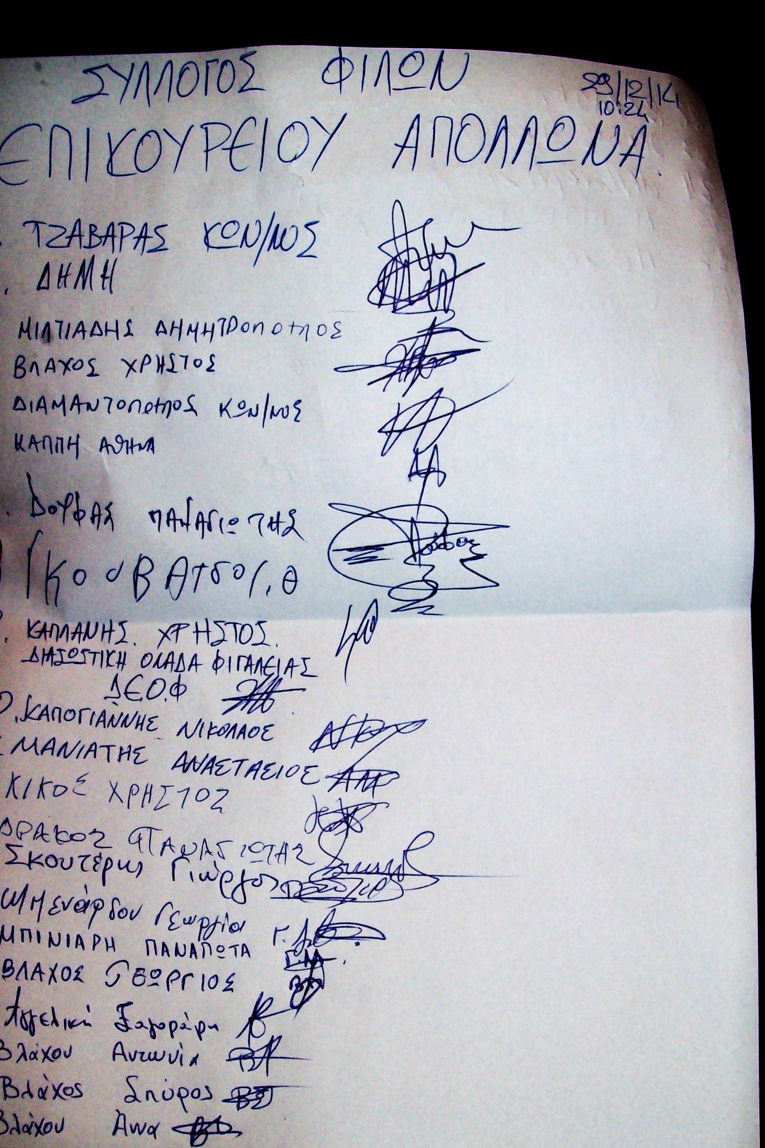 ΣΥΛΛΟΓΟΣ ΦΙΛΩΝ
29/12/14
10:24
ΕΠΙΚΟΥΡΕΙΟΥ ΑΠΟΛΛΩΝΑ.
ΤΖΑΒΑΡΑΣ ΚΩΝ/ΝΟΣ
ΔΗΜΗ
ΜΙΛΤΙΑΔΗΣ ΔΗΜΗΤΡΟΠΟΥΛΟΣ
ΒΛΑΧΟΣ ΧΡΗΣΤΟΣ
ΔΙΑΜΑΝΤΟΠΟΥΛΟΣ ΚΩΝ/ΝΟΣ
ΚΑΠΠΗ ΑΘΗΝΑ
ΠΑΝΑΓΙΩΤΗΣ
ΚΑΠΛΑΝΗΣ. ΧΡΗΣΤΟΣ.
ΔΙΑΣΩΣΤΙΚΗ ΟΜΑΔΑ ΦΙΓΑΛΕΙΑΣ
ΔΙ.Ε.Ο.Φ
ΚΑΠΟΓΙΑΝΝΗΣ ΝΙΚΟΛΑΟΣ
ΜΑΝΙΑΤΗΣ ΑΝΑΣΤΑΣΙΟΣ
ΚΙΚΟΣ ΧΡΗΣΤΟΣ
ΔΡΑΚΟΣ ΠΑΝΑΓΙΩΤΗΣ
Σκουτέρης Γιώργος
Γεωργία
ΜΠΙΝΙΑΡΗ ΠΑΝΑΓΙΩΤΑ
ΒΛΑΧΟΣ ΓΕΩΡΓΙΟΣ
Αγγελική
Βλάχου Αντωνία
Βλάχος Σπύρος
Βλάχου Άννα